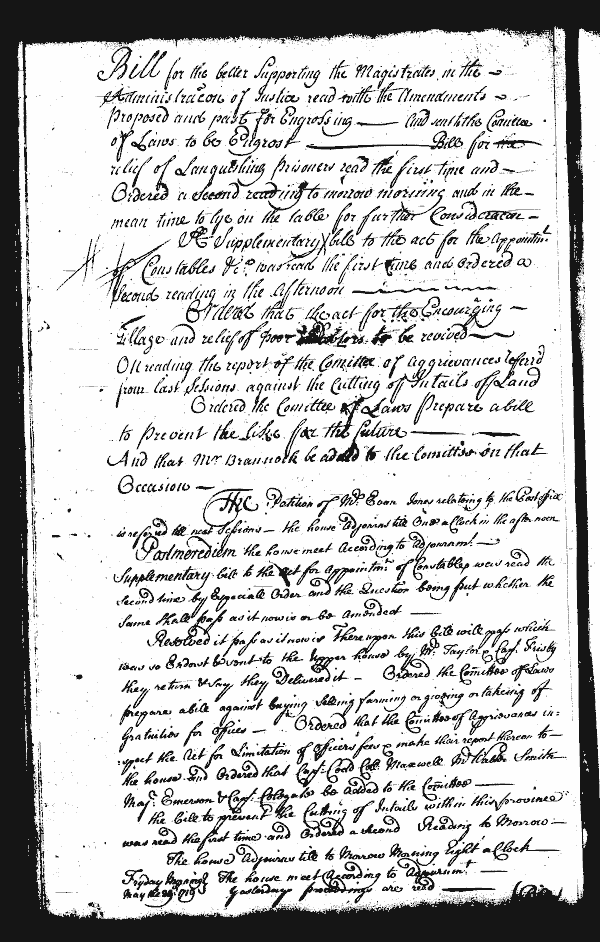 Bill for the better Supporting the Magistrates in the
Administracon of Justice read with the Amendments
Proposed and past for Engrossing — And sent the Comittee
of Laws to be Engrost — Bill for the
relief of Languishing Prisoners read the first time and
Ordered a second reading to morrow morning and in the
mean time to lye on the table for further Consideracon
A Supplementary bill to the act for the Appointmt.
of Constables &c. was read the first time and ordered a
Second reading in the afternoon
that the act for the Encouraging
Tillage and relief of poor debtors to be revived
On reading the report of the Comittee of Aggrievances referrd
from last Sessions against the Cutting of Intails of Land
Ordered the Comittee of Laws Prepare a bill
to Prevent the like for the future
And that Mr Brannock be added to the Comittee on that
Occasion —
The Petition of Mr. Evan Jones relateing to the Post office
is referred till next Sessions — the house Adjourns till One a Clock in the after noon
Postmeredium the house meet According to Adjournmt.
Supplementary bill to the Act for Appointmt. of Constables was read the
Second time by Especiall Order and the Question being put whether the
Same shall pass as it now is or be amended
Resolved it pass as it now is Thereupon this bill will pass which
was so Endorst & sent to the upper house by Mr. Taylor & Cap. Frisby
they return & say they Delivered it — Ordered the Comittee of Laws
prepare a bill against buying Selling farming or giveing or takeing of
Gratuities for offices — Ordered that the Comittee of Aggrievances in=
spect the Act for Limitation of officers fees & make their report thereon to
the house and Ordered that Capt. Coll. Maxwell Mr. Walter Smith
Majr. Emerson & Capt. be added to the Comittee
the bill to prevent the Cutting of Intails within this province
was read the first time and Ordered a second Reading to Morrow
The house Adjourns till to Morrow Morning Eight a Clock
Fryday Morning The house meet According to Adjournmt.
May the Yesterdays proceedings are read